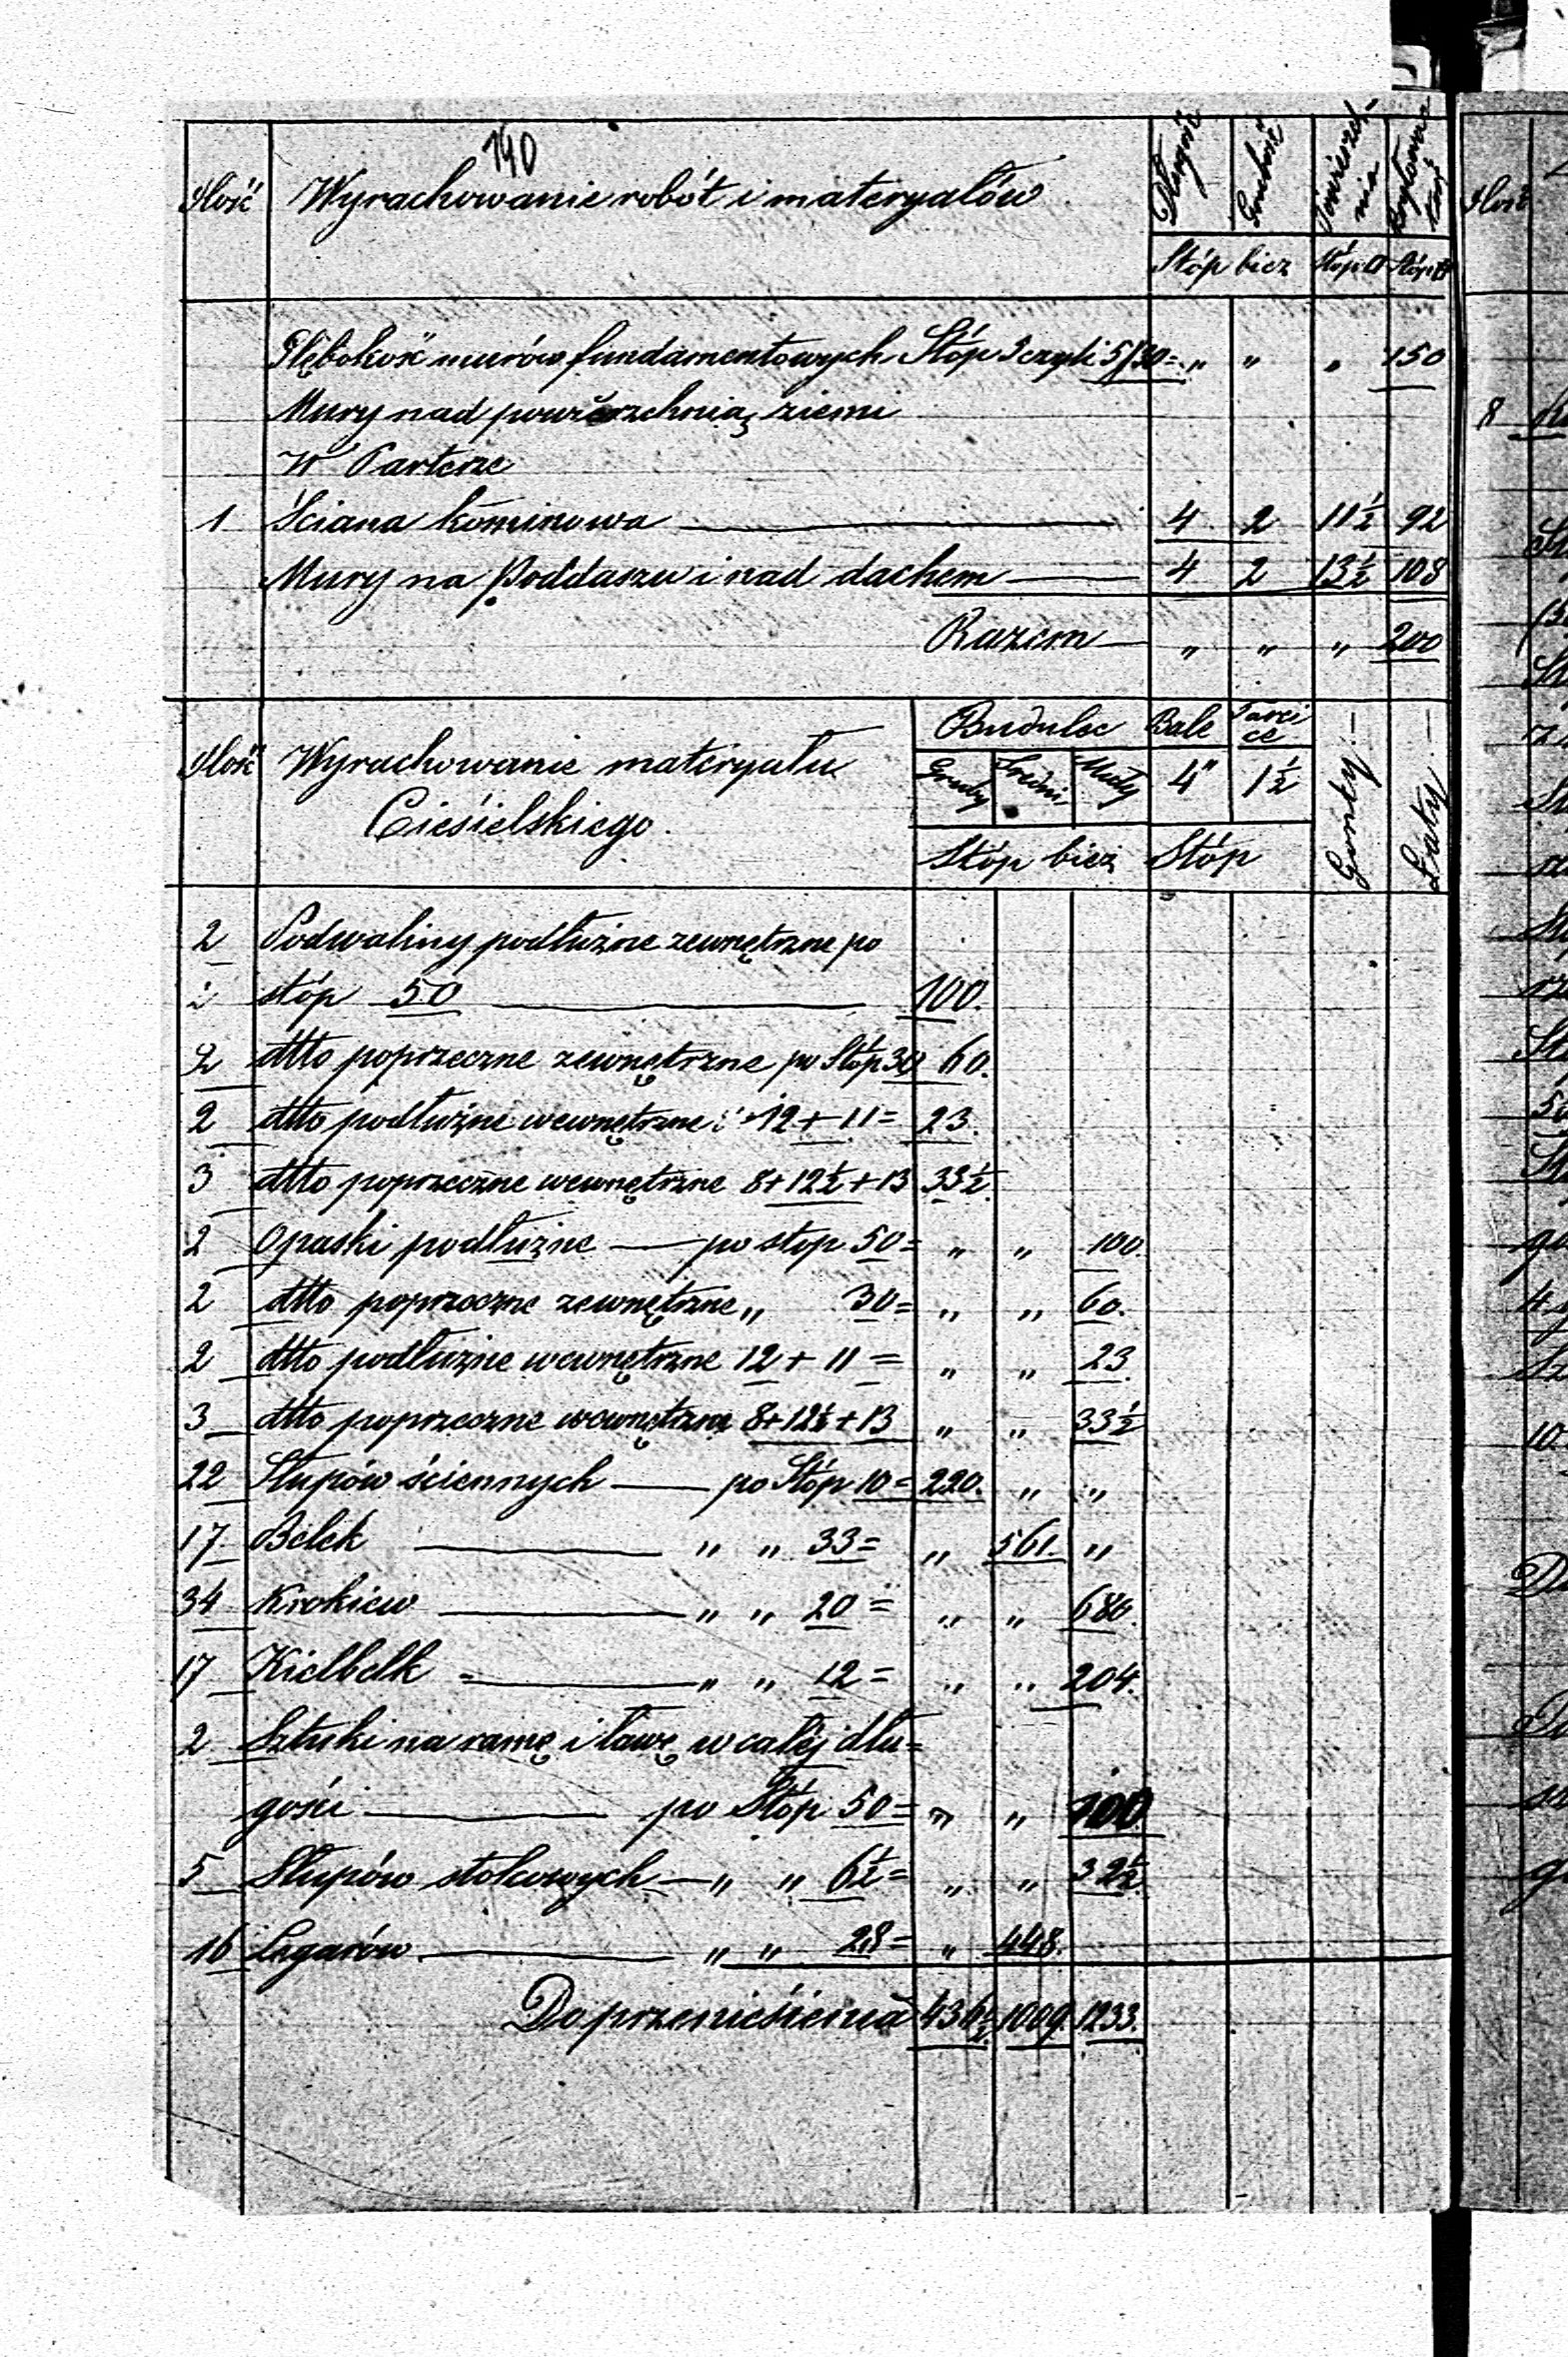 140
Ilość Wyrachowanie robót i materyałów Długość Grubość Powierzch- nia
Stóp bież Stóp □ Stóp
Głębokość murów fundamentowych Stóp 3 czyli 5/30= " " " 150
Mury nad powierzchnią ziemi
W Parterze
1 Ściana kominowa 4 2 11½ 92
Mury na Poddaszu i nad dachem 4 2 13½ 108
Razem " " " 200
Ilość Wyrachowanie materyału Budulec Bale Tarci
ce
Ciesielskiego. Gruby Średni Mały 4" 1½ Gonty Łaty
Stóp bież Stóp
2 Podwaliny podłużne zewnętrzne po
stóp 50 100.
2 dtto poprzeczne zewnętrzne po Stóp 30 60.
2 dtto podłużne wewnętrzne 12 + 11 = 23.
3 dtto poprzeczne wewnętrzne 8+12½+13 33½
2 Opaski podłużne po stop 50= " " 100.
2 dtto poprzeczne zewnętrzne " 30= " " 60.
2 dtto podłużne wewnętrzne 12 + 11 = " " 23
3 dtto poprzeczne wewnętrzne 8+12½+13 " " 33½
22 Słupów ściennych po Stóp 10= 220. " "
17 Belek " " 33= " 561. "
34 Krokiew " " 20= " " 680.
17 Kielbelk " " 12= " " 204.
2 Sztuki na ramę i ławę w całéj dłu=
gości po Stóp 50= " " 100
5 Słupów stolcowych " " 6½= " " 32½
16 Legarów " " 28= " 448.
Do przeniesienia 436½ 1009. 1233.
Ilość
8